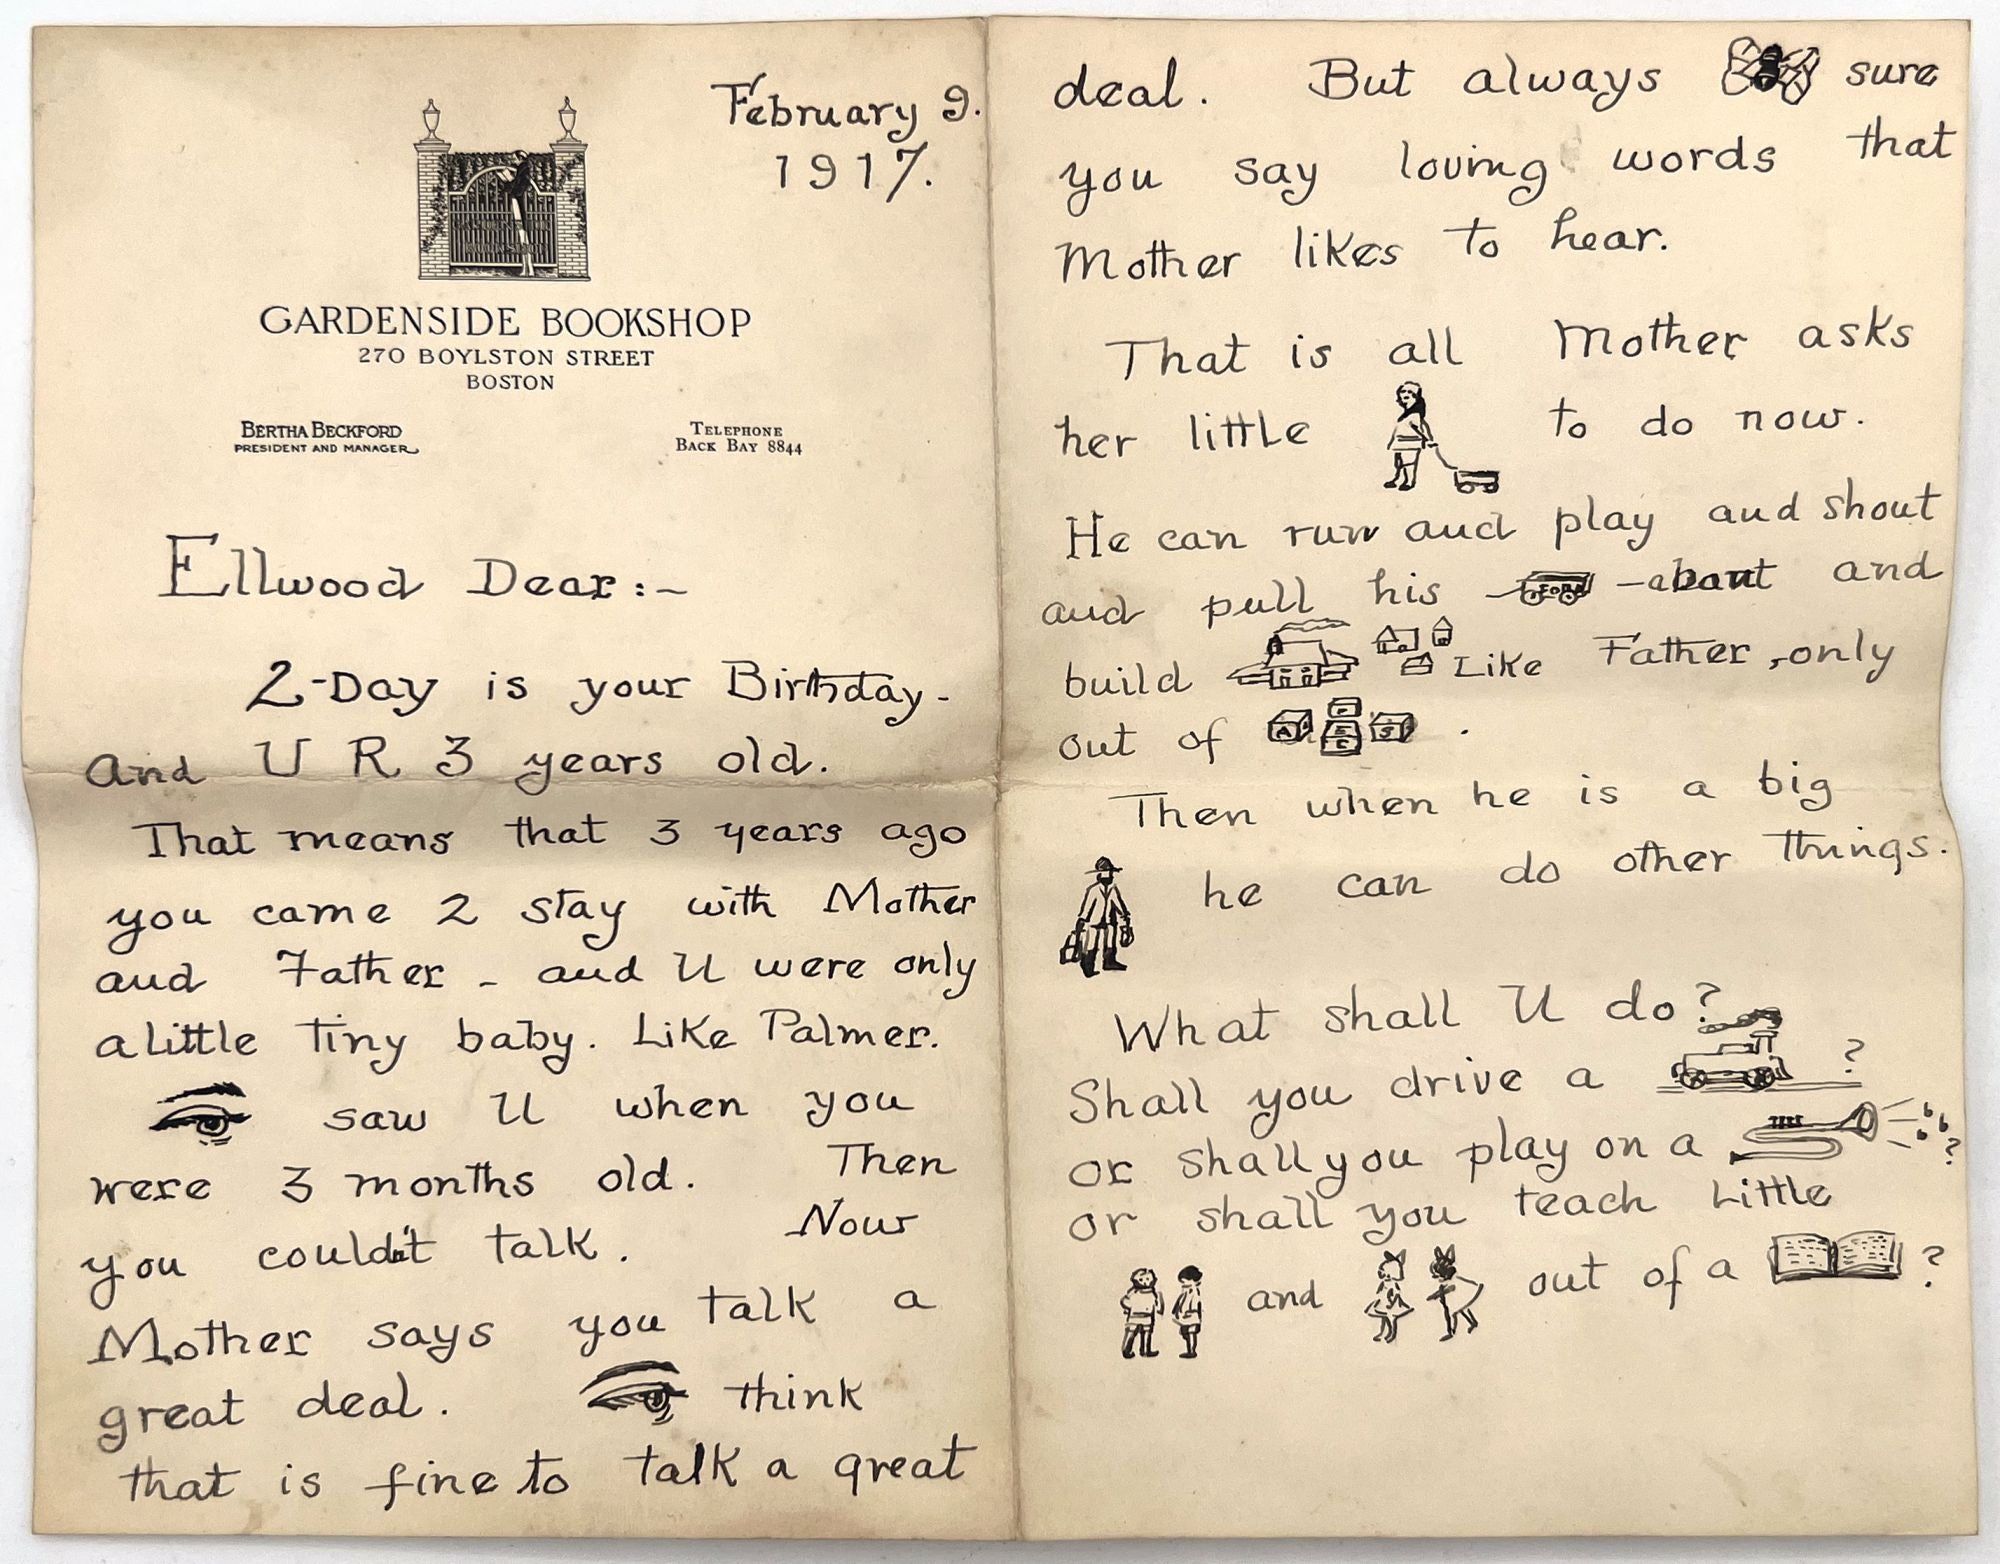 February 9.
1917.
GARDENSIDE BOOKSHOP
270 BOYLSTON STREET
BOSTON
BERTHA BECKFORD
PRESIDENT AND MANAGER
TELEPHONE
BACK BAY 8844
Ellwood Dear:-
2-Day is your Birthday-
and U R 3 years old.
That means that 3 years ago
you came 2 stay with Mother
and Father - and U were only
a little tiny baby. Like Palmer.
saw U when you
were 3 months old. Then
you couldn't talk. Now
Mother says you talk a
great deal. think
that is fine to talk a great
deal. But always sure
you say loving words that
Mother likes to hear.
That is all Mother asks
her little to do now.
He can run and play and shout
and pull his FORD -about and
build Like Father, only
out of A S .
Then when he is a big
he can do other things.
What shall U do?
Shall you drive a ?
or shall you play on a ?
or shall you teach Little
and out of a ?